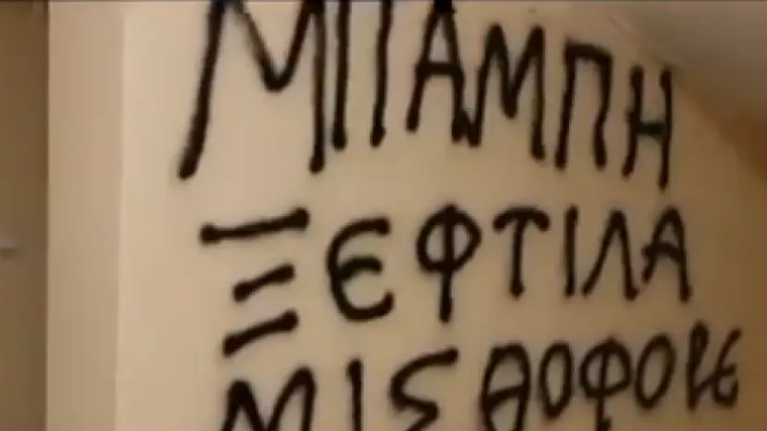 ΜΠΑΜΠΗ
ΞΕΦΤΙΛΑ
ΜΙΣΘΟΦΟΡΕ